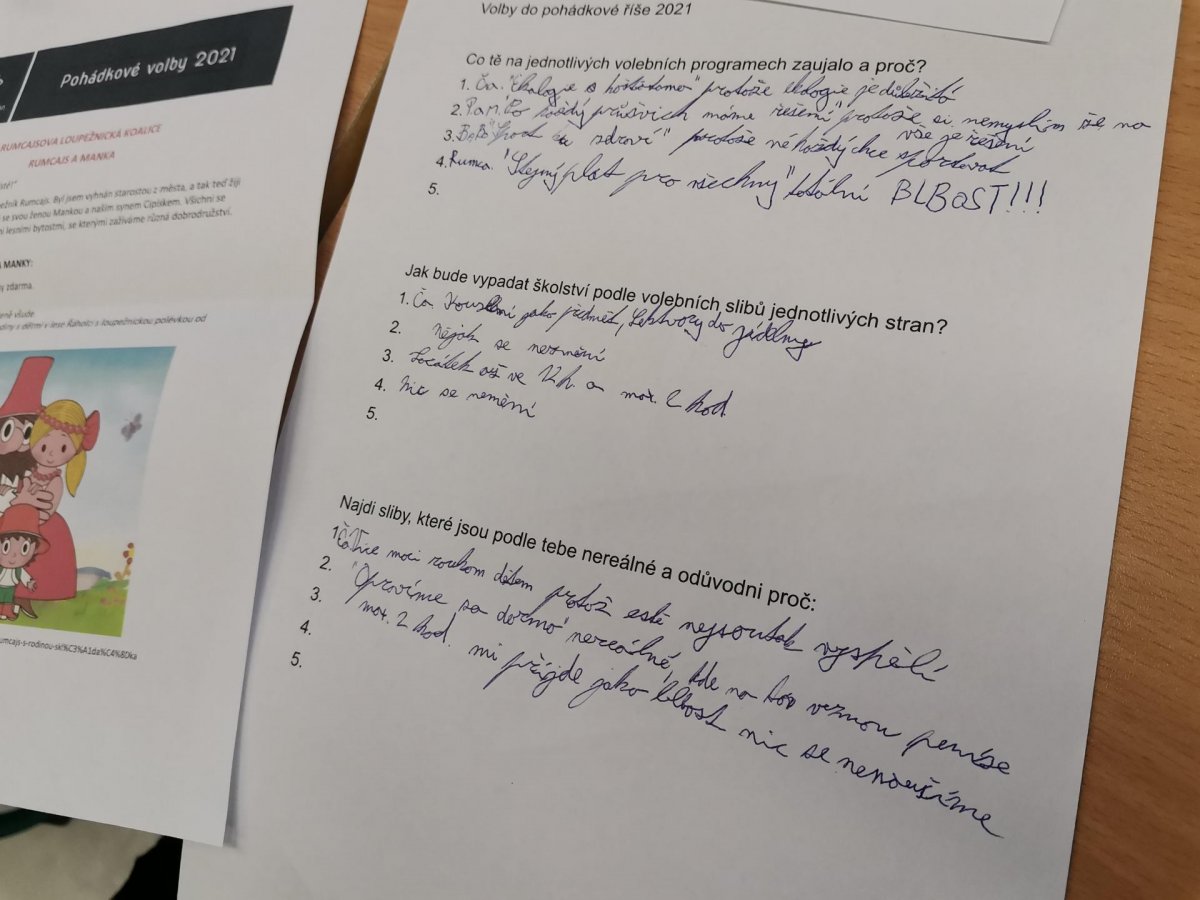 Pohádkové volby 2021
RUMCAJSOVA LOUPEŽNICKÁ KOALICE
RUMCAJS A MANKA
ežník Rumcajs. Byl jsem vyhnán starostou z města, a tak teď žiji
se svou ženou Mankou a naším synem Cipískem. Všichni se
i lesními bytostmi, se kterými zažíváme různá dobrodružství.
A MANKY:
y zdarma.
eně všude
diny s dětmi v lese Řáholci s loupežnickou polévkou od
umcajs-s-rodinou-sk%C3%A1da%C4%8Dka
Volby do pohádkové říše 2021
Co tě na jednotlivých volebních programech zaujalo a proč?
1. Ča. "Ekologie s" protože ekologie je důležitá
2. Pat. "Pro každý průšvih máme řešení" protože si nemyslím že na
vše je řešení
3. BoBo "Sport zdraví" protože ne každý chce sportovat
4. Rumca. "Stejný plat pro všechny" totální BLBOST!!!
5.
Jak bude vypadat školství podle volebních slibů jednotlivých stran?
1. Ča. Kouzlení jako předmět, Lektvary do jídelny
2. Nějak se nezmění
3. Začátek až ve 12h. a max. 2 hod.
4. Nic se nemění
5.
Najdi sliby, které jsou podle tebe nereálné a odůvodni proč:
1. Ča. Více moci kouzlem dětem protož eště nejsou tak vyspělí
2. "Opravíme za darmo" nereálné, kde na to vezmou peníze
3. max. 2 hod. mi příjde jako blbost nic se nenaučíme
4.
5.